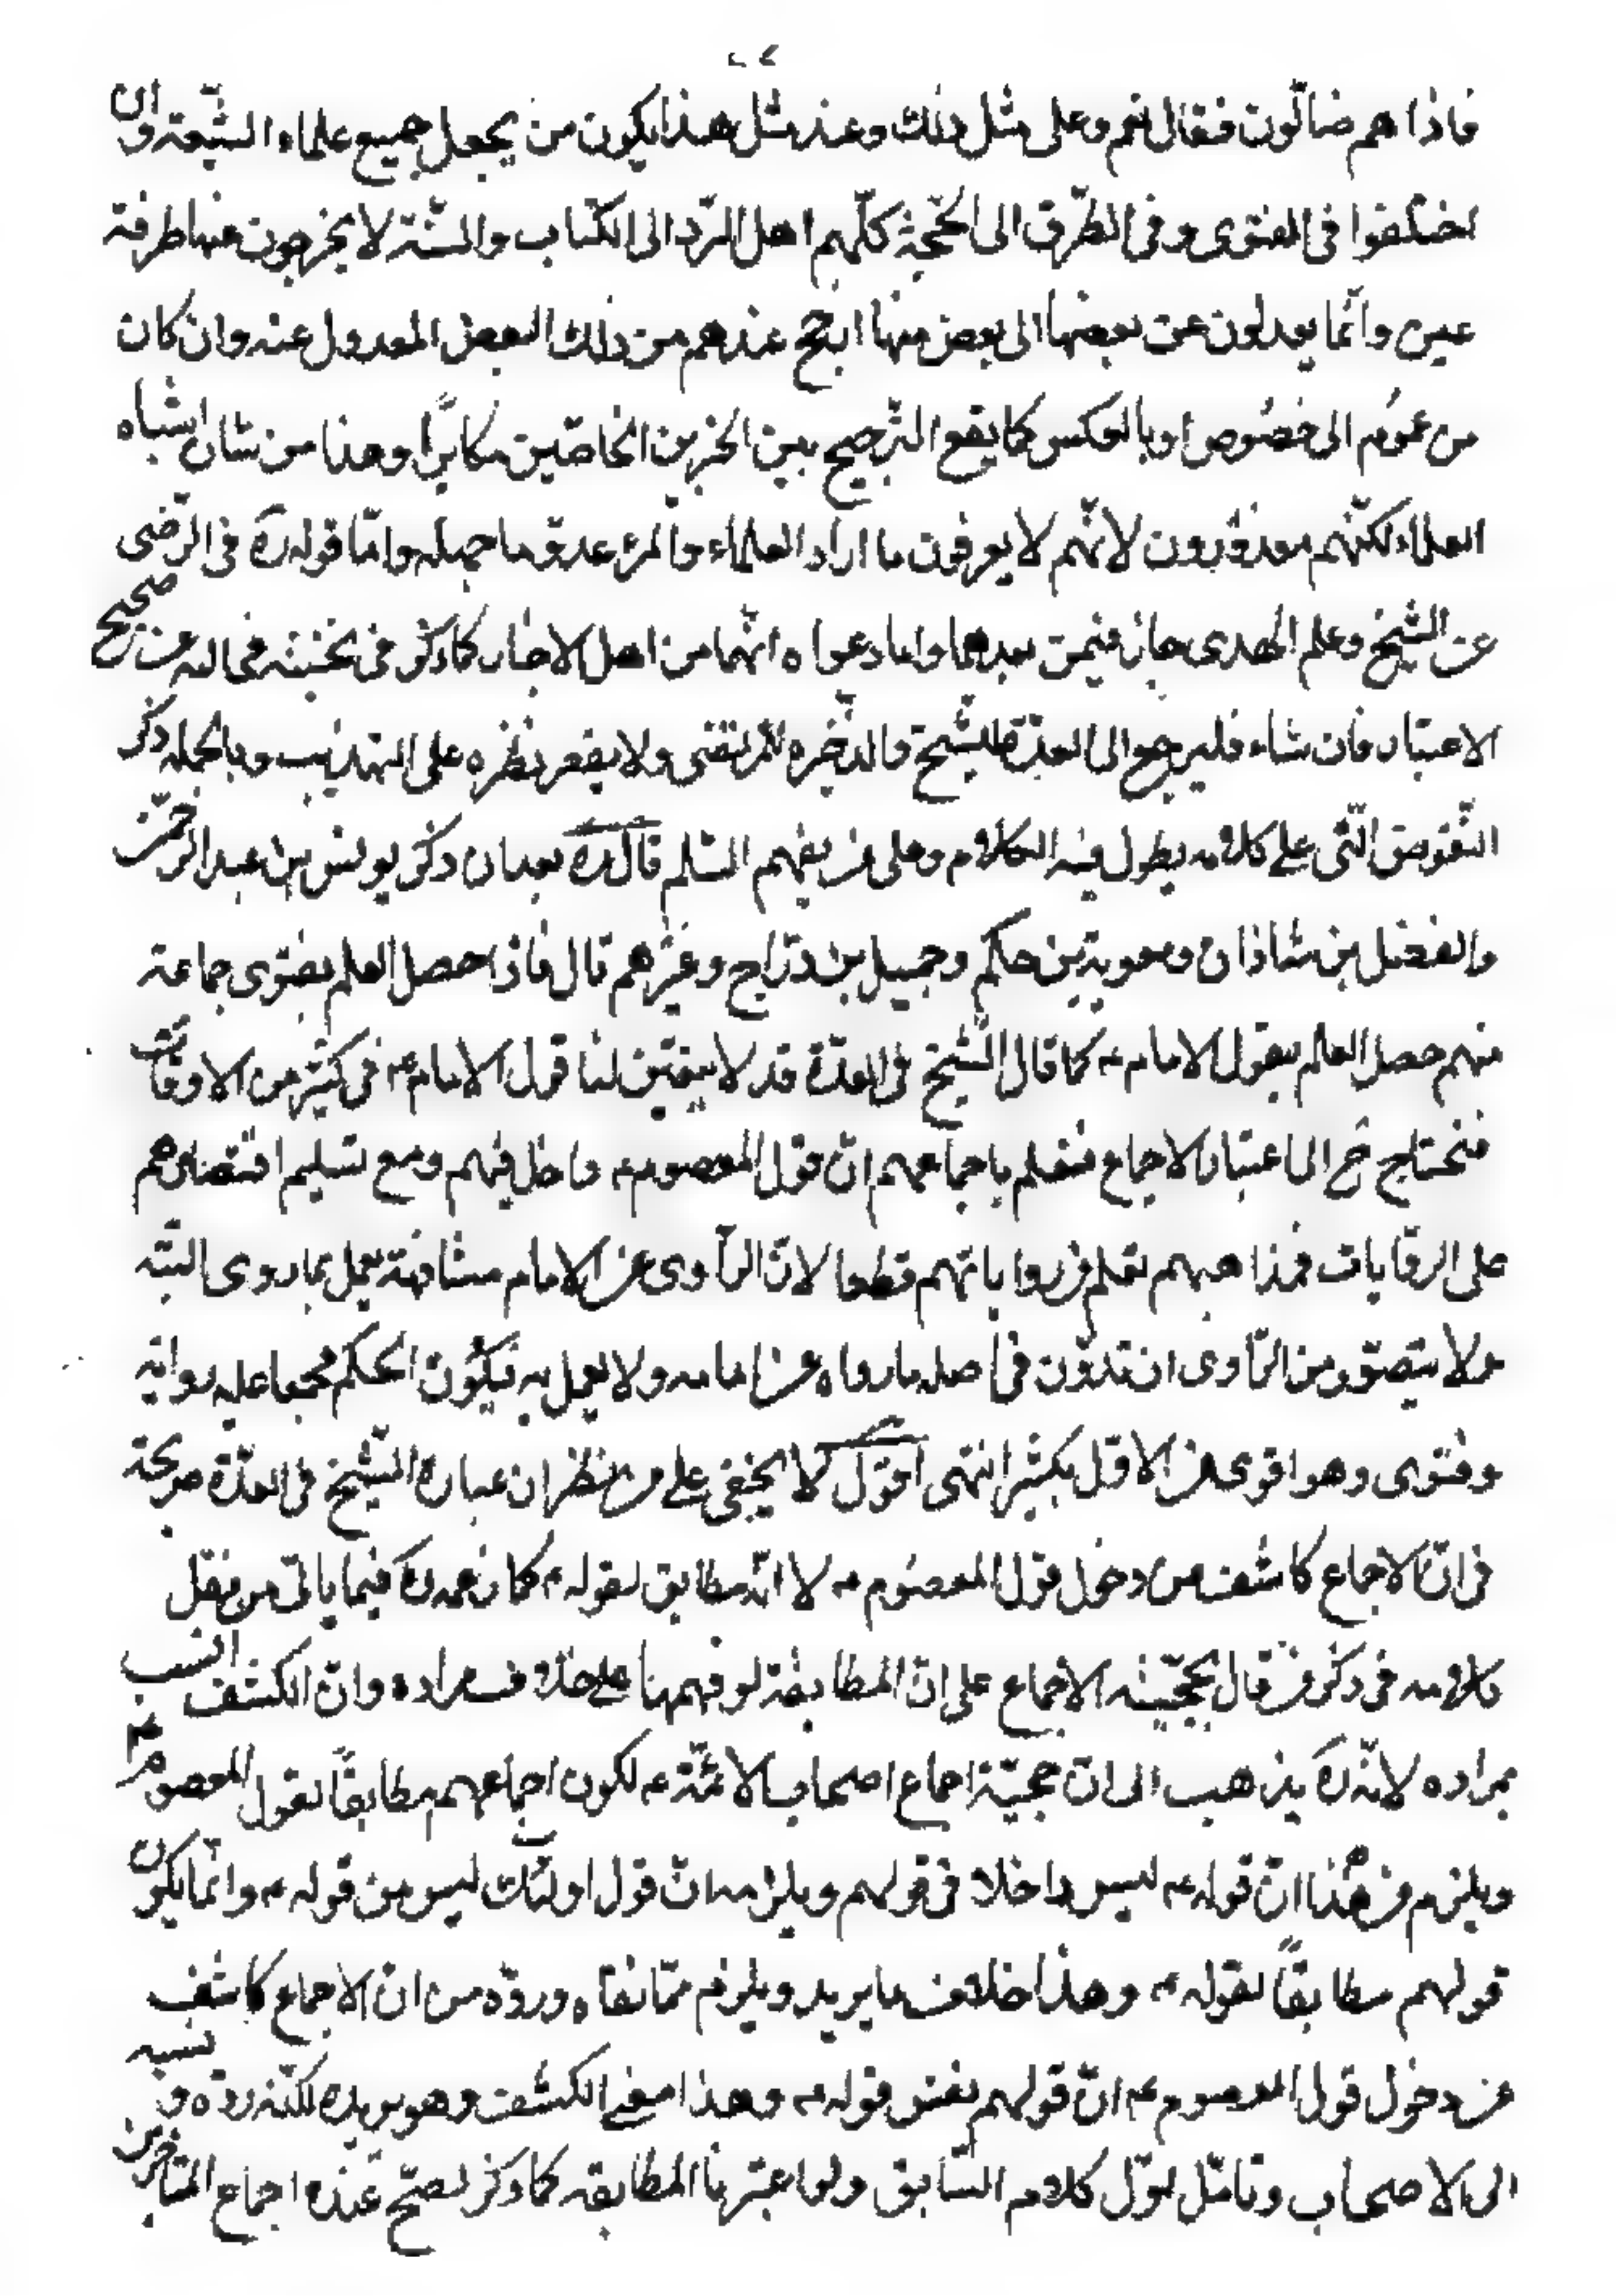 فاذا هم ضالّون فقال نعم وعلى مثل ذلك وعند مثل هذا يكون من يجعل جميع علماء الشيعة وان
اختلفوا في الفتوى وفي الطرق الى الحجّة كلّهم اهل الردّ الى الكتاب والسنّة لا يخرجون عنها طرفة
عين وانّما يعدلون عن بعضها الى بعض منها ارجح عندهم من ذلك البعض المعدول عنه وان كان
من عموم الى خصوص او بالعكس كما يقع الترجيح بين الخبرين الخاصّين مكابرًا وهذا من شان اشباه
العلماء لكنّهم معذورون لانّهم لا يعرفون ما اراد العلماء والمرء عدوّ ما جهله وامّا قوله ره في الرضى
عن الشيخ وعلم الهدى جاز فيمن بعدهما وامّا دعواه انّهما من اهل الاخبار كما ذكر في فخالف عن صحيح
الاعتبار فان شاء فليرجع الى العدّة للشيخ والذخيره للمرتضى ولا يقصر نظره على التهذيب وبالجمله ذكر
النقوض الّتي على كلامه يطول فيه الكلام وعلى من يفهم السّلم قال ره بعد ان ذكر يونس بن عبد الرحمن
والفضل بن شاذان ومعوية بن حكم وجميل بن درّاج وغيرهم قال فاذا حصل العلم بفتوى جماعة
منهم حصل العلم بقول الامام ع كما قال الشّيخ في العدّة قد لا يتعيّن لنا قول الامام ع في كثير من الاوقات
فنحتاج ح الى اعتبار الاجماع فنعلم باجماعهم انّ قول المعصوم ع داخل فيهم ومع تسليم اقتصارهم
على الروايات فمذاهبهم تعلم من رواياتهم قطعا لانّ الرّاوى عن الامام مشافهة يعمل بما روى البتّه
ولا يتصوّر من الرّاوى ان تدوّن في اصله ما رواه عن امامه ولا يعمل به فيكون الحكم مجمعا عليه رواية
وفتوى وهو اقوى من الاوّل بكثير انتهى اقول لا يخفى على من نظر ان عبارة الشّيخ في العدّة صريحة
في انّ الاجماع كاشف من دخول قول المعصوم ع لا انّه مطابق لقوله ع كما زعمه ره فيما ياتى من نقل
كلامه في ذكر من قال بحجّيّة الاجماع على انّ المطابقة لو فهمها على خلاف مراده وانّ الكشف انسب
بمراده لانّه ره يذهب الى ان حجيّة اجماع اصحاب الائمّة ع لكون اجماعهم مطابقًا لقول المعصوم ع
ويلزم من هذا انّ قوله ع ليس داخلا في قولهم ويلزمه انّ قول اولئك ليس من قوله ع وانّما يكون
قولهم مطابقًا لقوله ع وهذا خلاف ما يريد ويلزم ممّا نفاه وردّه من انّ الاجماع كاشف
عن دخول قول المعصوم ع انّ قولهم نفس قوله ع وهذا معنى الكشف وهو يريده لكنّه ردّه ونسبه
الى الاصحاب وتامّل اوّل كلامه السّابق ولو اعتبرنا المطابقه كما ذكر لصحّ عنده اجماع المتاخرين